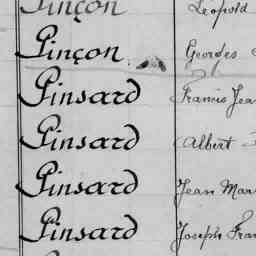 Pinçon Leopold
Pinçon Georges
Pinsard Francis Jea
Pinsard Albert
Pinsard Jean Mar
Pinsard Joseph Fran